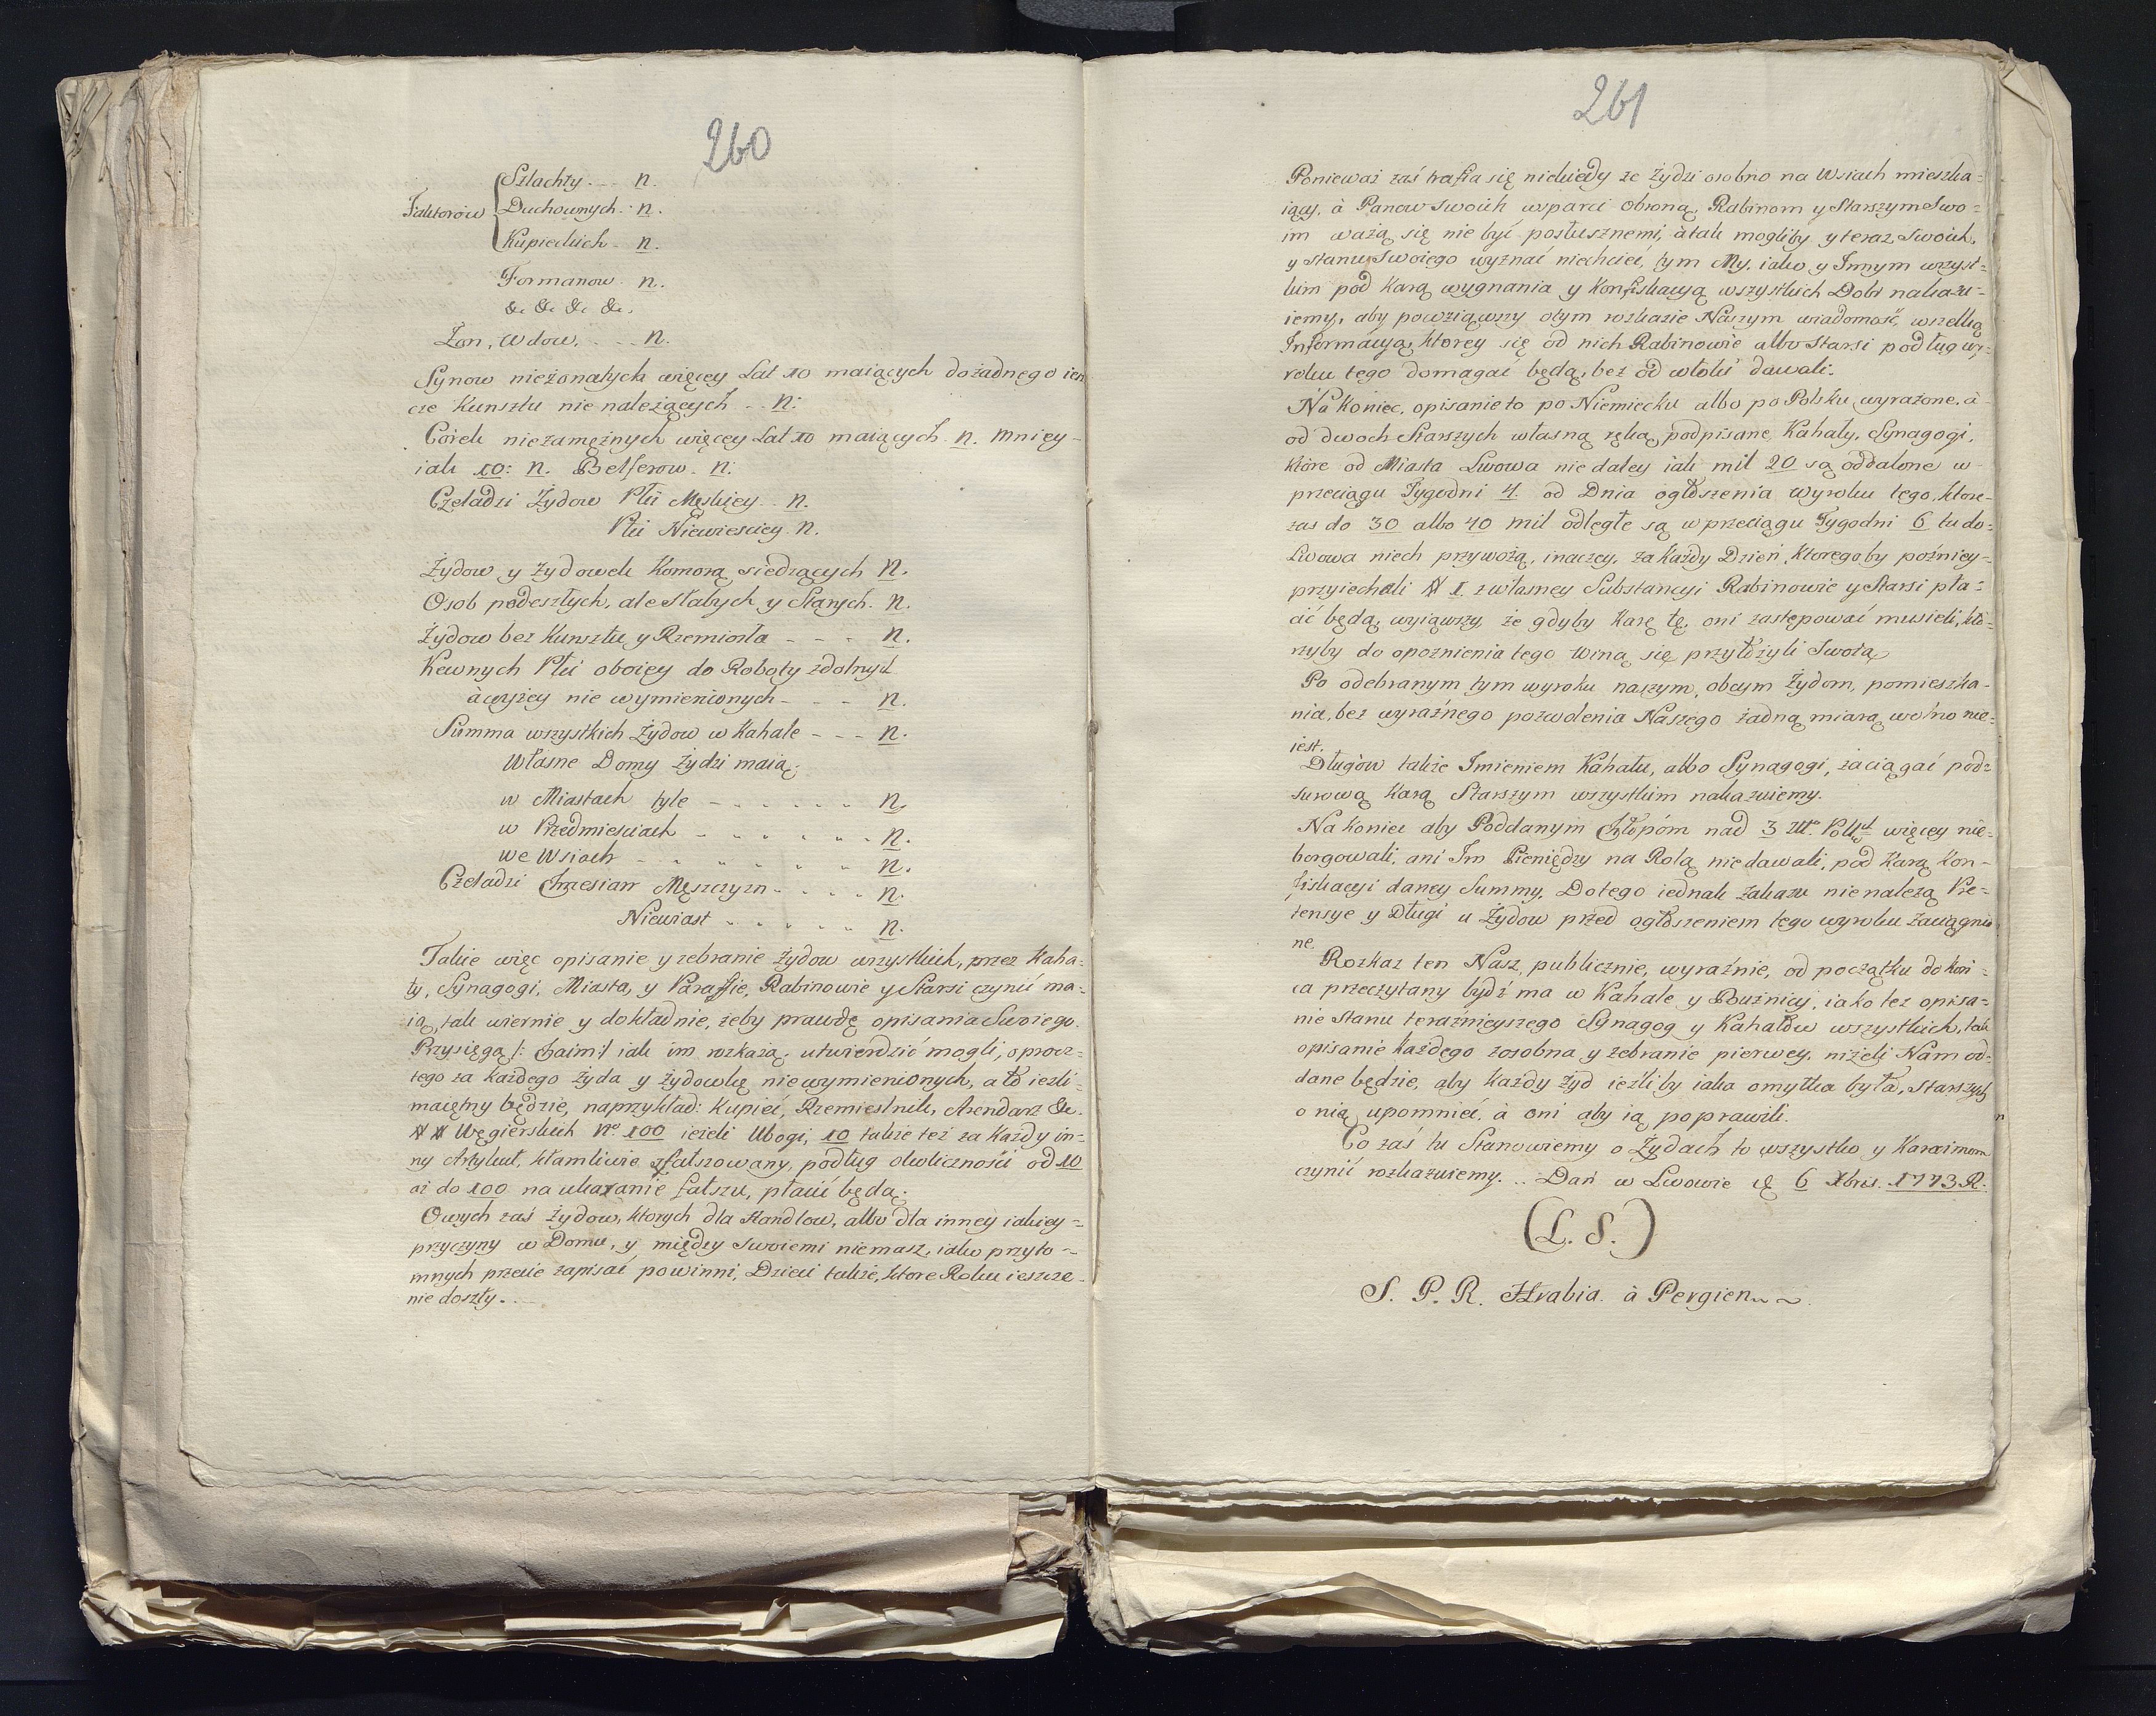 260
Szlachty . - - n.
Faktorow Duchownych . n.
Kupieckich - n.
Formanow . n.
&c &c &c &c.
Żon, Wdow, . - - n.
Synow nieżonatych więcey Lat 10 maiących do żadnego iesz
cze Kunsztu nie należących . . n:
Córek niezamężnych więcey Lat 10 maiących . n. mniey-
iak 10: n. Belferow . n:
Czeladzi Żydow Płci Męskiey . . n.
Płci Niewiesciey . n.
Żydow y Żydowek Komorą siedzących n.
Osob podeszłych, ale słabych y Starych . n.
Żydow bez Kunsztu y Rzemiosła - - - n.
Kewnych Płci oboiey do Roboty zdolnych
à wyżey nie wymienionych - - - n.
Summa wszystkich Żydow w Kahale - - - n.
Własne Domy Żydzi maią:
w Miastach tyle - - - - - - n.
w Przedmiesciach - - - - - - n.
we Wsiach - - - - - - n.
Czeladzi Chrzesian Męszczyzn - - - - n.
Niewiast - - - - - n.
Takie więc opisanie y zebranie Żydow wszystkich, przez Kaha=
ły, Synagogi, Miasta, y Paraffie, Rabinowie y Starsi czynić ma=
ią, tak wiernie y dokładnie, żeby prawdę opisania Swoiego
Przysięgą /: Chaim :/ iak im rozkażą, utwierdzić mogli, oprocz=
tego za każdego Żyda y Żydowkę niewymienionych, a to iezli=
maiętny będzie, naprzykład: Kupieć, Rzemiesłnik, Arendarz &c.
## Węgierskich No 100 ieżeli Ubogi, 10 także też za każdy in=
ny Artykuł, kłamliwie zfałszowany, podług okoliczności od 10
aż do 100 na ukazanie fałszu, płacić będą.
Owych zaś Żydow, ktorych dla Handlow, albo dla inney iakiey=
przyczyny w Domu, y między swoiemi niemasz, iako przyto=
mnych przecie zapisać powinni, Dzieci także, ktore Roku ieszcze-
nie doszły. . —
261
Ponieważ zaś trafia się niekiedy ze Żydzi osobno na Wsiach mieszka=
iący, à Panow swoich wsparci obroną, Rabinom y Starszym Swo=
im ważą się nie być posłusznemi, à tak mogliby y teraz Swoich,
y stanu Swoiego wyznać niechcieć, tym My, iako y Innym wszyst=
kim pod Karą wygnania y Konfiskacyą wszystkich Dobr nakazu=
iemy, aby powziąwszy otym rozkazie Naszym wiadomość, wszelką
Informacyą, ktorey się od nich Rabinowie albo Starsi podług wy=
roku tego domagać będą, bez odwłoki dawali.
Na koniec, opisanie to po Niemiecku albo po Polsku wyrażone, à-
od dwoch Starszych własną ręką podpisane Kahały, Synagogi,
które od Miasta Lwowa niedaley iak mil 20 są oddalone w-
przeciągu Tygodni 4. od Dnia ogłoszenia wyroku tego, ktore-
zas do 30 albo 40 mil odległe są w przeciągu Tygodni 6 tu do=
Lwowa niech przywożą, inaczey, za Każdy Dzień, ktoregoby poźniey=
przyiechali # 1. z własney Substancyi Rabinowie y Starsi pła=
cić będą, wyiąwszy, że gdyby Karę tę, oni zastępować musieli, kto=
rzyby do opoznienia tego winą się przyłożyli Swoią
Po odebranym tym wyroku naszym, obcym Żydom, pomieszka=
nia, bez wyraźnego pozwolenia Naszego żadną miarą wolno nie=
iest.
Długow także Imieniem Kahału, albo Synagogi, zaciągać pod=
surową Karą Starszym wszystkim nakazuiemy.
Na koniec aby Poddanym Chłopóm nad 3 Złł. Polskch więcey nie=
borgowali, ani Im Pieniędzy na Rolą niedawali, pod Karą Kon-
fiskacyi daney Summy. Do tego iednak zakazu nienależą Pre=
tensye y Długi u Żydow przed ogłoszeniem tego wyroku zaciągnio
ne.
Rozkaz ten Nasz, publicznie, wyraźnie, od początku do koń=
ca przeczytany bydź ma w Kahale y Bużnicy, iako też opisa=
nie Stanu teraźnieyszego Synagog y Kahałów wszystkich, tak
opisanie każdego zosobna y zebranie pierwey, niżeli Nam od=
dane będzie, aby każdy Żyd ieźliby iaka omyłka była, Starszych
o nią upomnieć, à oni aby ią poprawili.
Co zaś tu Stanowiemy o Żydach to wszystko y Karaimom
czynić rozkazuiemy. . . Dań w Lwowie d. 6 Xbris. 1773 R.
(L. S.)
S. P. R. Hrabia à Pergien